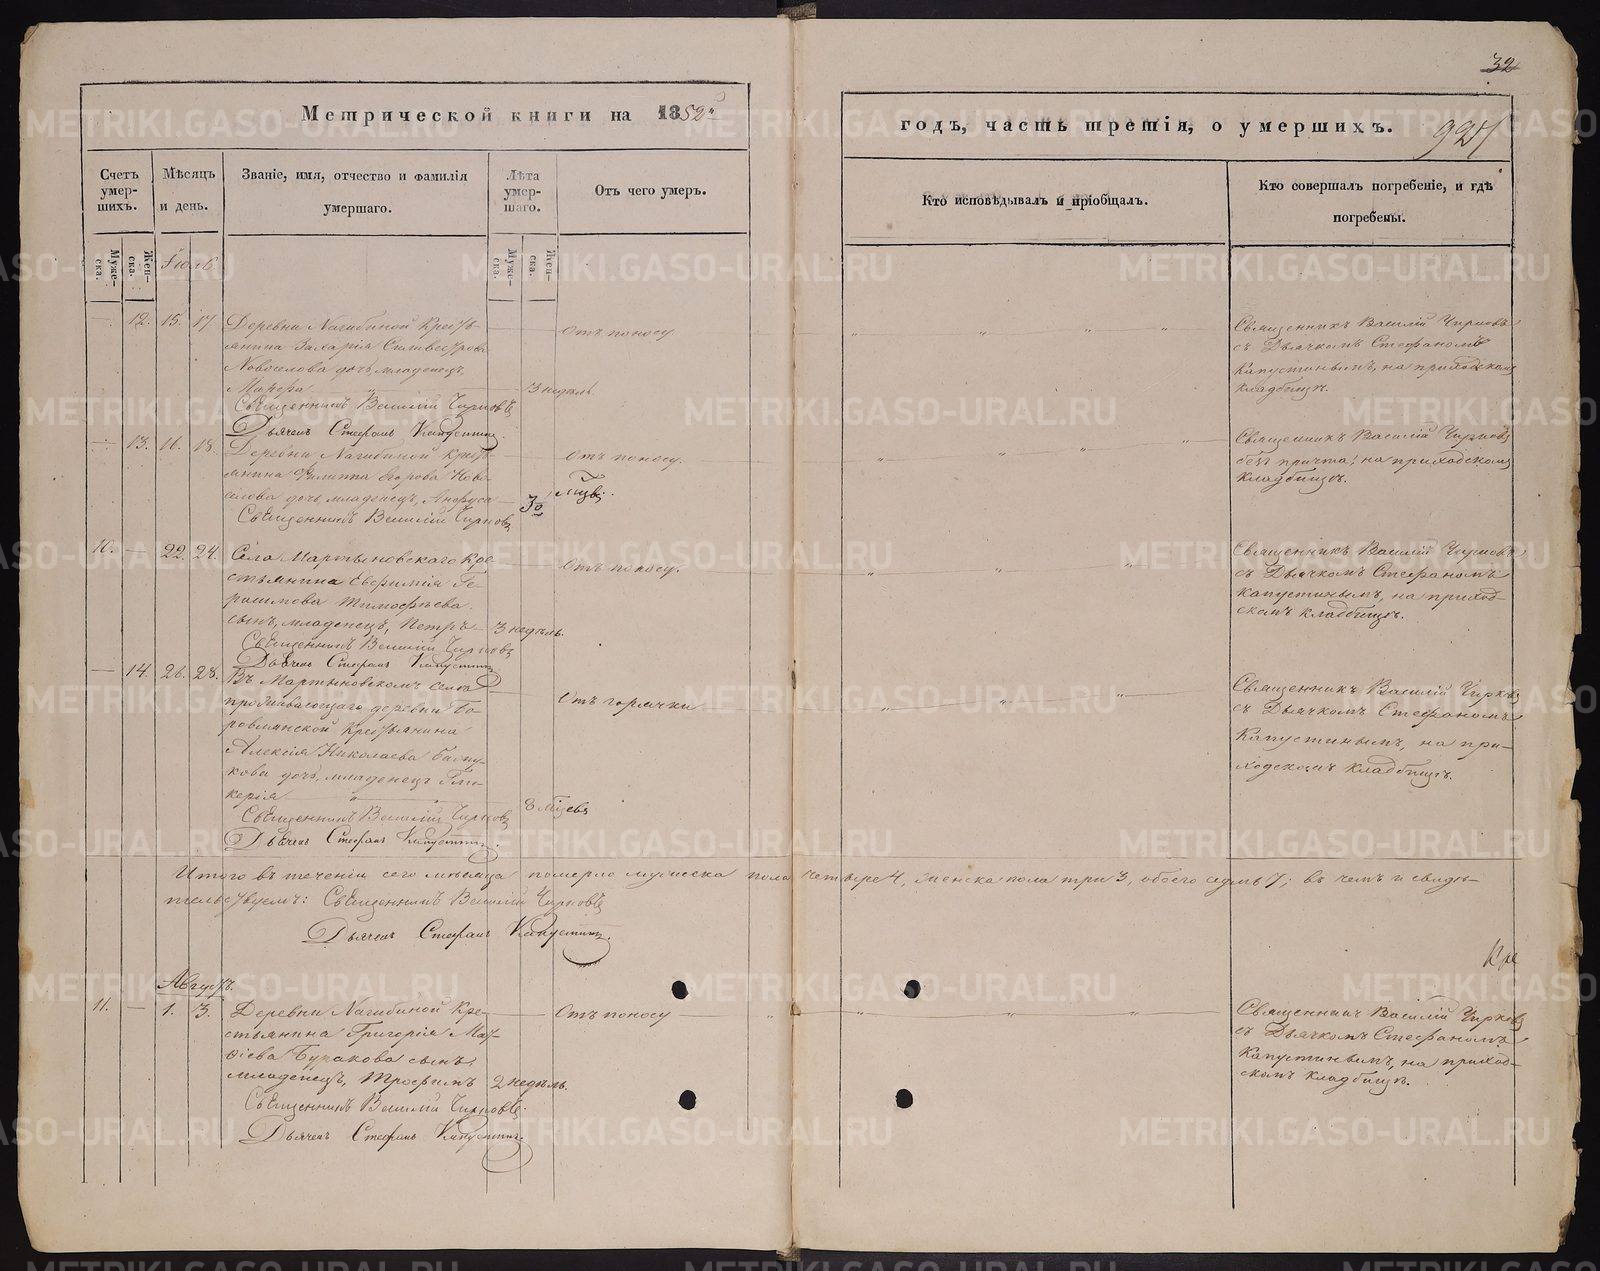 32
Метрической книги на 1852й
годъ, часть третія, о умершихъ.
924
Счетъ умер-шихъ.
Мѣсяцъ и день.
Званіе, имя, отчество и фамилія
умершаго.
Лѣта умер-шаго.
Отъ чего умеръ.
Кто исповѣдывалъ и пріобщалъ.
Кто совершалъ погребеніе, и гдѣ
погребены.
Муже-ска.
Жен-ска.
Муже-ска.
Жен-ска.
Іюль
12. 15. 17 Деревни Нагибиной Кресть- Отъ поносу
янина Захарія Сильвестрова
Новоселова дочь, младенецъ,
Марѳа 3 недѣль.
Священникъ Василій Чирковъ
Дьячекъ Стефанъ Капустинъ.
Священникъ Василій Чирковъ
съ Дьячкомъ Стефаномъ
Капустинымъ, на приходскомъ
кладбищѣ.
13. 16. 18. Деревни Нагибиной кресть- Отъ поносу.
янина Филиппа Егорова Ново-
селова дочь младенецъ, Анфуса
Священникъ Василій Чирковъ
Священникъ Василій Чирковъ
безъ причта, на приходскомъ
кладбищѣ.
10. 22. 24. Села Мартыновскаго Кре- Отъ поносу.
стьянина Евфимія Ге-
расимова Тимофѣева
сынъ, младенецъ, Петръ 3 недѣль.
Священникъ Василій Чирковъ
Дьячекъ Стефанъ Капустинъ
Священникъ Василій Чирковъ
съ Дьячкомъ Стефаномъ
Капустинымъ, на приход-
скомъ кладбищѣ.
14. 26. 28. Въ Мартыновскомъ селѣ Отъ горячки
проживающаго деревни Бо-
ровлянской Крестьянина
Алексія Николаева
дочь, младенецъ Гли-
керія 8 мѣсяцевъ
Священникъ Василій Чирковъ
Дьячекъ Стефанъ Капустинъ.
Священникъ Василій Чирковъ
съ Дьячкомъ Стефаномъ
Капустинымъ, на при-
ходскомъ кладбищѣ.
Итого въ теченіи сего мѣсяца померло мужеска пола четыре 4, женска пола три 3, обоего седмь 7; въ чемъ и свидѣ-
тельствуемъ: Священникъ Василій Чирковъ
Дьячекъ Стефанъ Капустинъ.
Августъ.
11. 1. 3. Деревни Нагибиной Кре- Отъ поносу
стьянина Григорія Мат-
ѳіева Буракова сынъ,
младенецъ, Трофимъ 2 недѣль.
Священникъ Василій Чирковъ.
Дьячекъ Стефанъ Капустинъ.
Священникъ Василій Чирковъ
съ Дьячкомъ Стефаномъ
Капустинымъ, на приход-
скомъ кладбищѣ.
METRIKI.GASO-URAL.RU